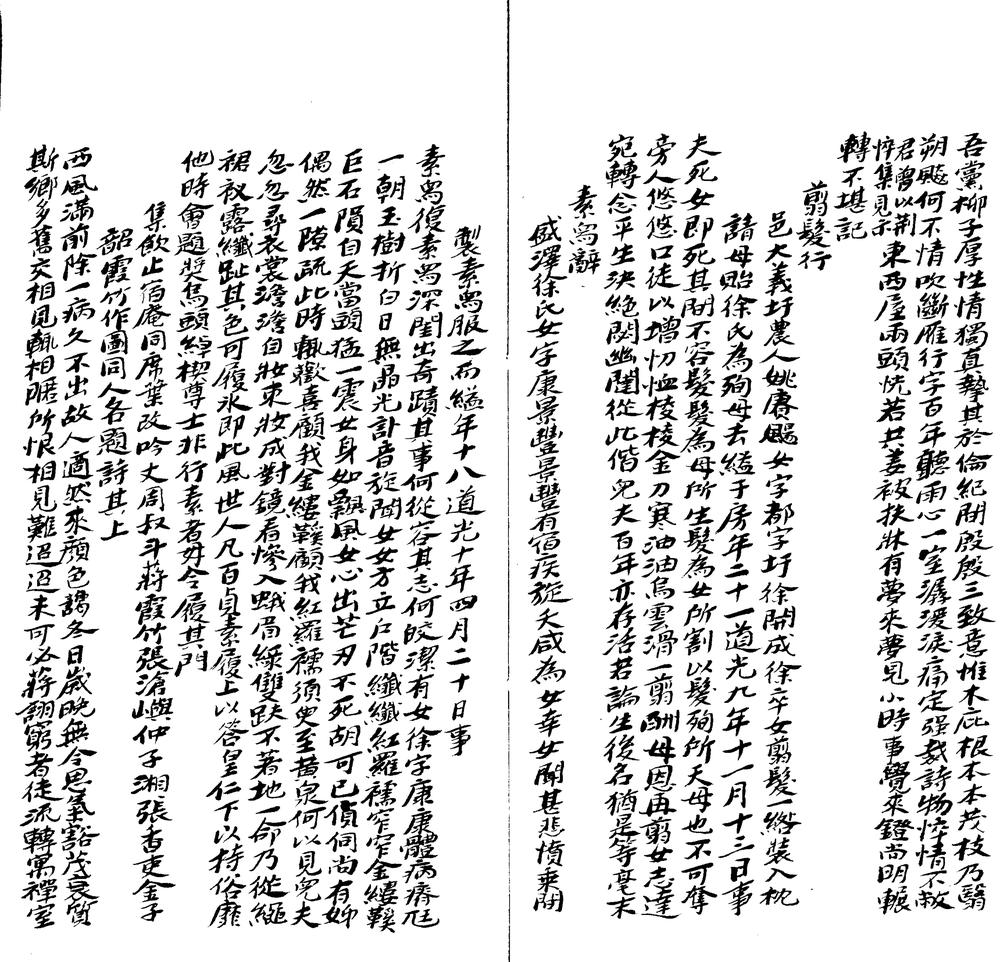 吾黨柳子厚性情獨真摯其於倫紀間殷殷三致意惟木庇根本本茂枝乃翳
朔颷何不情吹斷雁行字百年聽雨心一室潺湲淚痛定强裁詩物悴情不敝
君曾以荊悴集見示東西屋兩頭恍若共姜被扶牀有夢來夢見小時事覺來鐙尚明輾
轉不堪記
剪髮行
邑大義圩農人姚賡颺女字都字圩徐開成徐卒女剪髮一綹裝入枕
請母貽徐氏為殉母去縊于房年二十一道光九年十一月十三日事
夫死女即死其間不容髮髮為母所生髮為女所割以髮殉所天母也不可奪
旁人悠悠口徒以增忉怛棱棱金刀寒油油烏雲滑一剪酬母恩再剪女志達
宛轉念平生決絕閟幽閨從此偕兒夫百年亦存活若論生後名猶是等毫末
素舄辭
盛澤徐氏女字康景豐景豐有宿疾旋夭咸為女幸女聞甚悲憤乘間
製素舄服之而縊年十八道光十年四月二十日事
素舄復素舄深閨出奇蹟其事何從容其志何皎潔有女徐字康康體病瘠尫
一朝玉樹折白日無晶光訃音旋聞女女方立階纖纖紅羅襦窄窄金縷鞵
巨石隕自天當頭猛一震女身如飄風女心出芒刃不死胡可已偵伺尚有妳
偶然一隙疏此時輒歡喜顧我金縷鞵顧我紅羅襦須臾至黃泉何以見兒夫
忽忽尋衣裳澹澹自妝束妝成對鏡看慘入蛾眉綠雙趺不著地一命乃從繩
裙衩露纖趾其色可履冰即此風世人凡百貞素履上以答皇仁下以持俗靡
他時會題將烏頭綽楔尊士非行素者毋今履其門
集飲止宿庵同席葉改吟丈周叔斗蔣霞竹張滄嶼仲子湘張香吏金子
韶霞竹作圖同人各題詩其上
西風滿前除一病久不出故人適然來顏色譪冬日歲晚無令思氣豁茂衰質
斯鄉多舊交相見輒相暱所恨相見難迢迢未可必蔣詡窮者徒流轉寓禪室